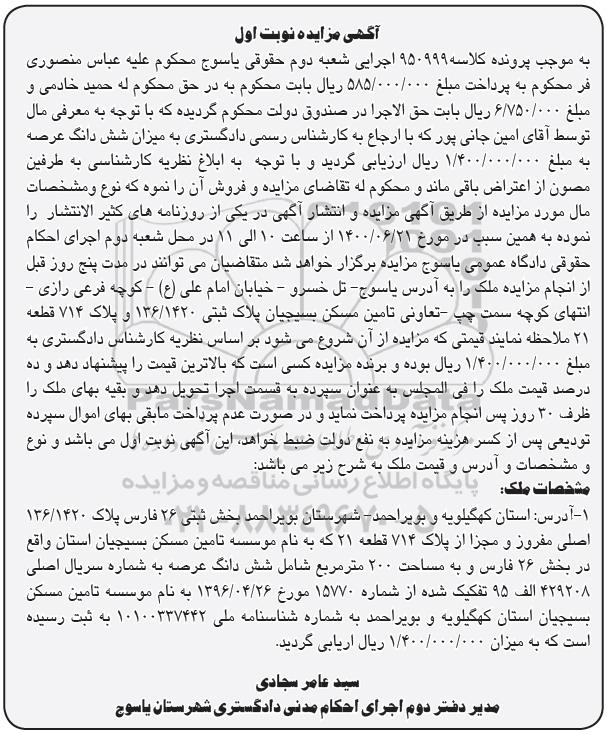 آگهی مزایده نوبت اول
به موجب پرونده کلاسه ۹۵۰۹۹۹ اجرایی شعبه دوم حقوقی یاسوج محکوم علیه عباس منصوری
فر محکوم به پرداخت مبلغ ۵۸۵/۰۰۰/۰۰۰ ریال بابت محکوم به در حق محکوم له حمید خادمی و
مبلغ ۶/۷۵۰/۰۰۰ ریال بابت حق الاجرا در صندوق دولت محکوم گردیده که با توجه به معرفی مال
توسط آقای امین جانی پور که با ارجاع به کارشناس رسمی دادگستری به میزان شش دانگ عرصه
به مبلغ ۱/۴۰۰/۰۰۰/۰۰۰ ریال ارزیابی گردید و با توجه به ابلاغ نظریه کارشناسی به طرفین
مصون از اعتراض باقی ماند و محکوم له تقاضای مزایده و فروش آن را نموه که نوع ومشخصات
مال مورد مزایده از طریق آگهی مزایده و انتشار آگهی در یکی از روزنامه های کثیر الانتشار را
نموده به همین سبب در مورخ ۱۴۰۰/۰۶/۲۱ از ساعت ۱۰ الی ۱۱ در محل شعبه دوم اجرای احکام
حقوقی دادگاه عمومی یاسوج مزایده برگزار خواهد شد متقاضیان می توانند در مدت پنج روز قبل
از انجام مزایده ملک را به آدرس یاسوج- تل خسرو - خیابان امام علی (ع) - کوچه فرعی رازی -
انتهای کوچه سمت چپ -تعاونی تامین مسکن بسیجیان پلاک ثبتی ۱۳۶/۱۴۲۰ و پلاک ۷۱۴ قطعه
۲۱ ملاحظه نمایند قیمتی که مزایده از آن شروع می شود بر اساس نظریه کارشناس دادگستری به
مبلغ ۱/۴۰۰/۰۰۰/۰۰۰ ریال بوده و برنده مزایده کسی است که بالاترین قیمت را پیشنهاد دهد و ده
درصد قیمت ملک را فی المجلس به عنوان سپرده به قسمت اجرا تحویل دهد و بقیه بهای ملک را
ظرف ۳۰ روز پس انجام مزایده پرداخت نماید و در صورت عدم پرداخت مابقی بهای اموال سپرده
تودیعی پس از کسر هزینه مزایده به نفع دولت ضبط خواهد، این آگهی نوبت اول می باشد و نوع
و مشخصات و آدرس و قیمت ملک به شرح زیر می باشد:
مشخصات ملک:
۱-آدرس: استان کهگیلویه و بویراحمد- شهرستان بویراحمد بخش ثبتی ۲۶ فارس پلاک ۱۳۶/۱۴۲۰
اصلی مفروز و مجزا از پلاک ۷۱۴ قطعه ۲۱ که به نام موسسه تامین مسکن بسیجیان استان واقع
در بخش ۲۶ فارس و به مساحت ۲۰۰ مترمربع شامل شش دانگ عرصه به شماره سریال اصلی
۴۲۹۲۰۸ الف ۹۵ تفکیک شده از شماره ۱۵۷۷۰ مورخ ۱۳۹۶/۰۴/۲۶ به نام موسسه تامین مسکن
بسیجیان استان کهگیلویه و بویراحمد به شماره شناسنامه ملی ۱۰۱۰۰۳۳۷۴۴۲ به ثبت رسیده
است که به میزان ۱/۴۰۰/۰۰۰/۰۰۰ ریال اریابی گردید.
سید عامر سجادی
مدیر دفتر دوم اجرای احکام مدنی دادگستری شهرستان یاسوج
ParsNamadData
پایگاه اطلاع رسانی مناقصه و مزایده